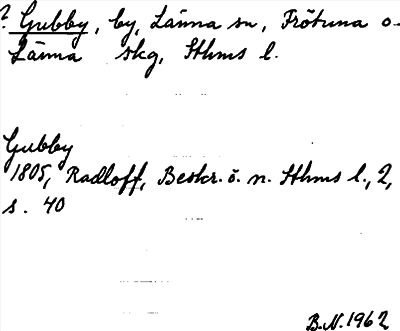 ? Gubby, by, Länna sn, Frötuna o
Länna skg, Sthms l.
Gubby
1805, Radloff, Beskr. ö. n. Sthms l., 2,
s. 40
B.N. 1962